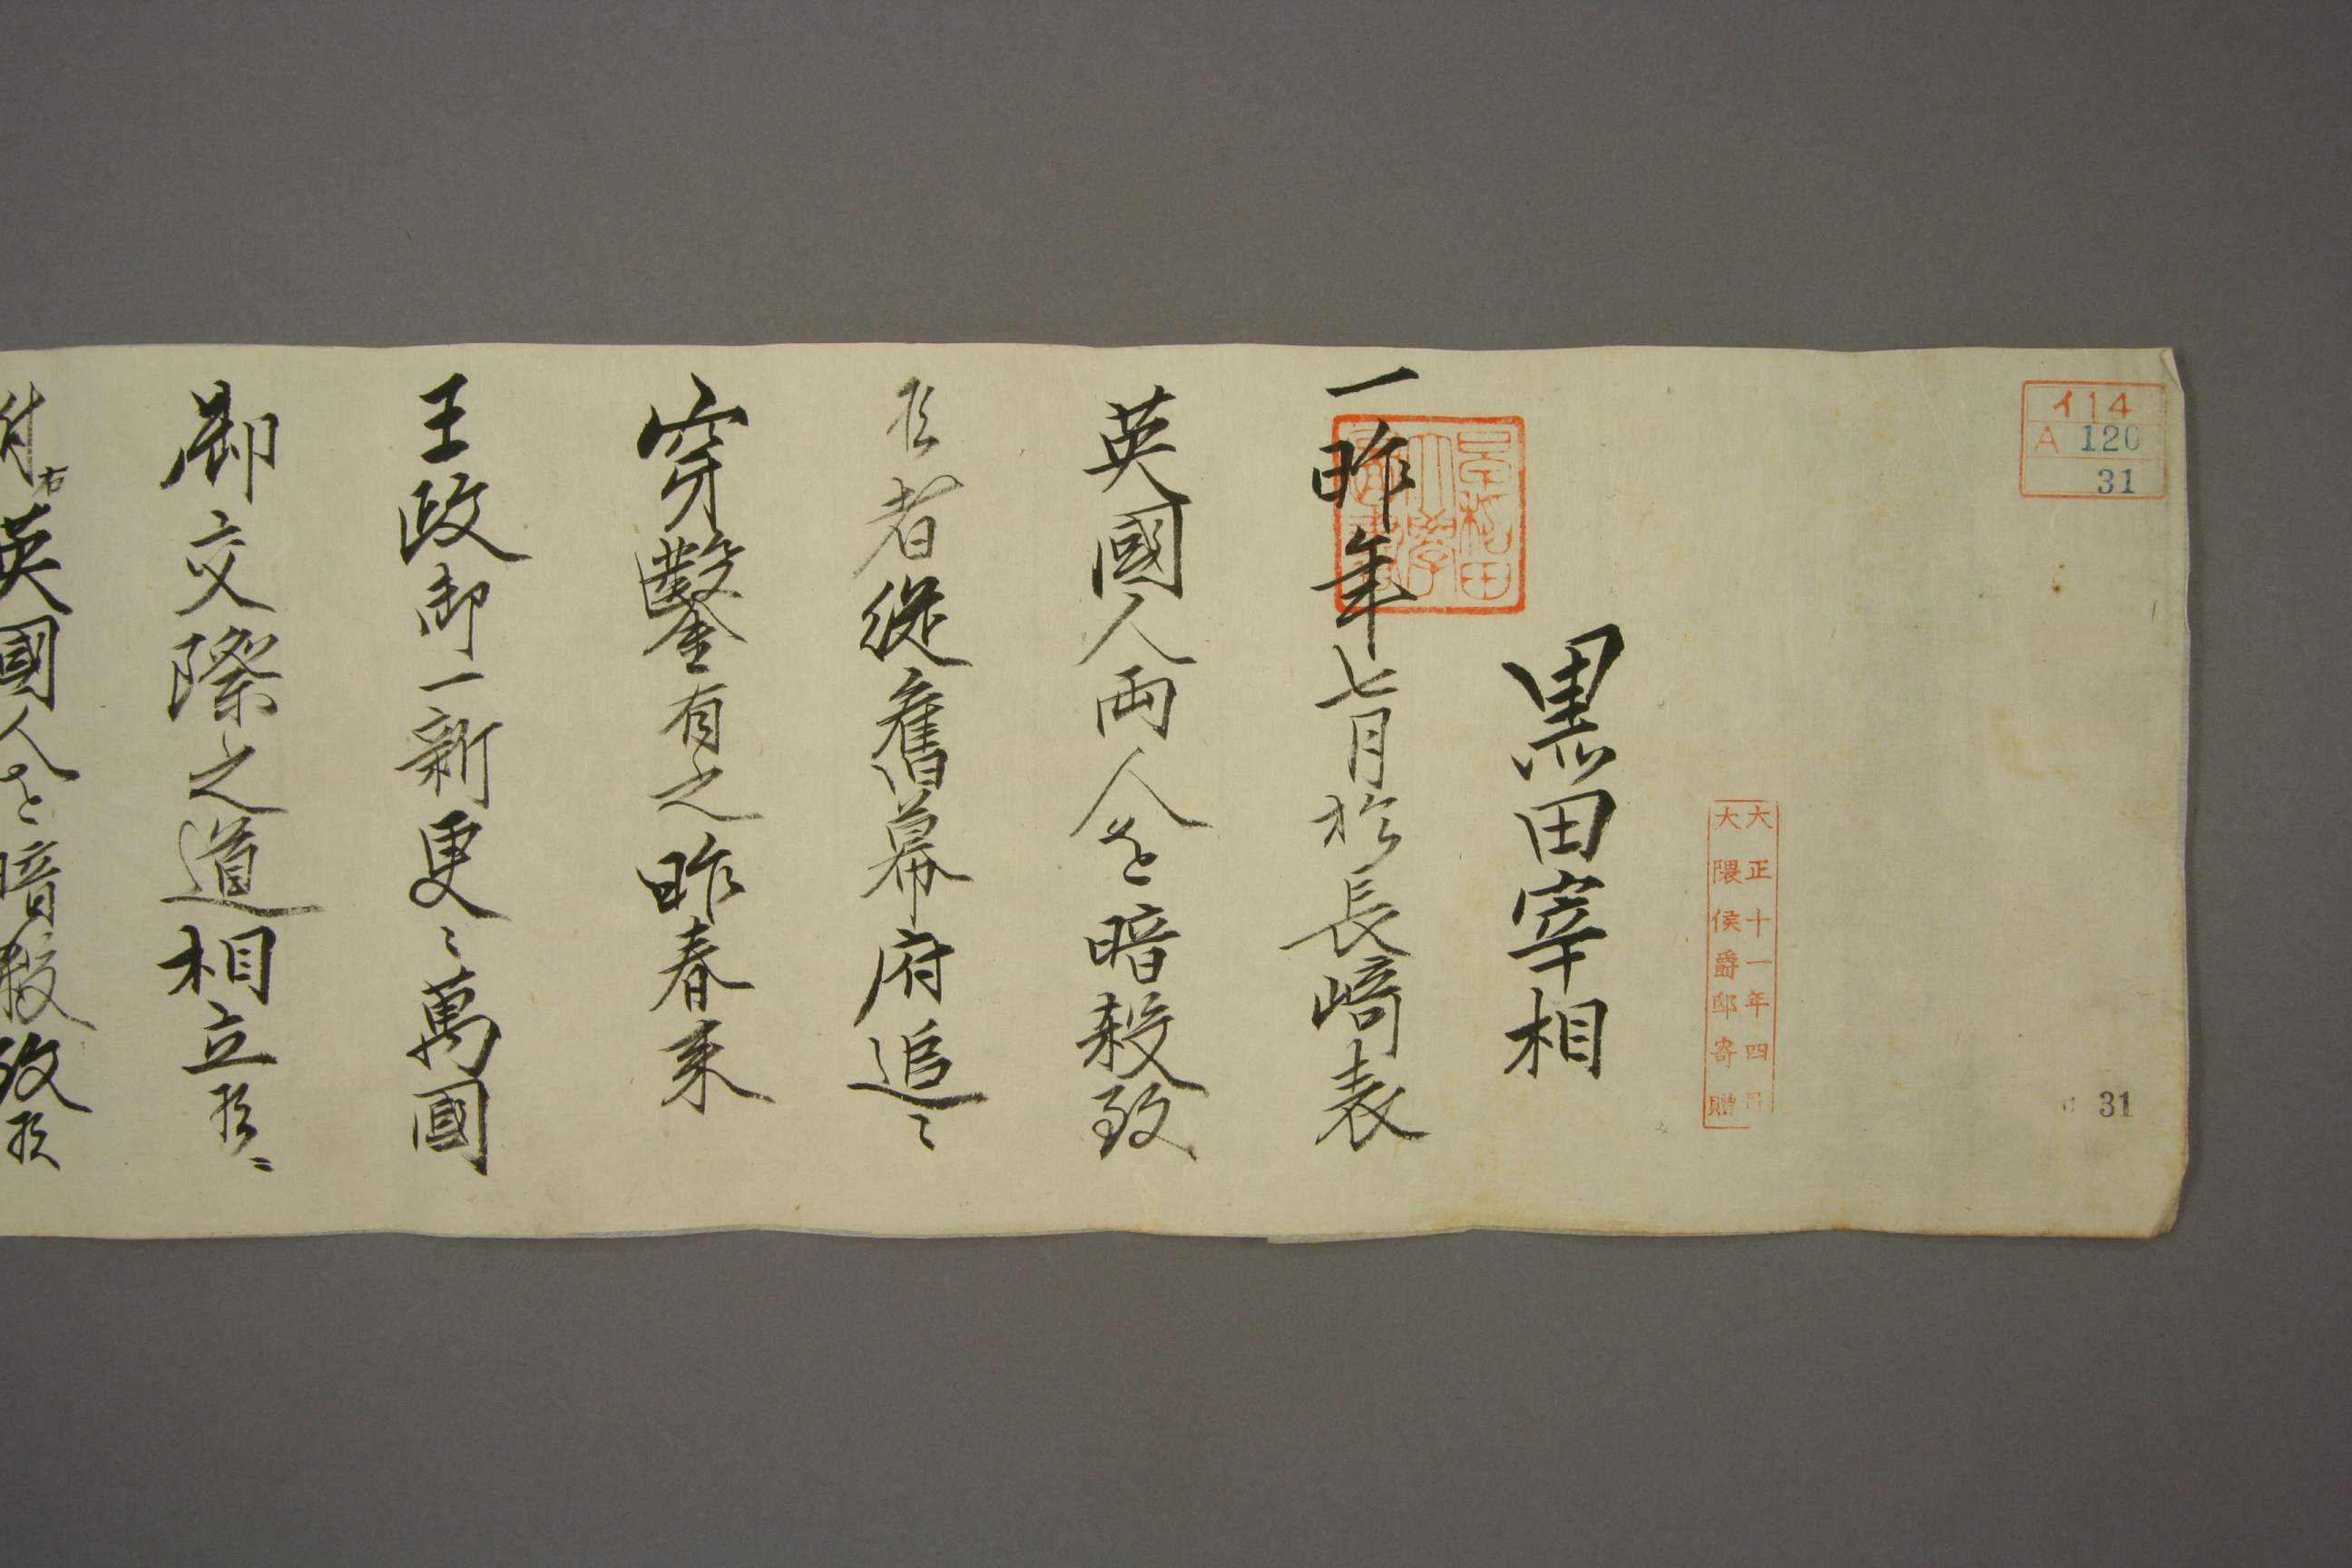 イ14
A 120
31
大正十一年四月
大隈侯爵邸寄贈
31
早稲田
大學
圖書
黒田宰相
一昨年七月於長崎表
英國人両人を暗殺致
候者従舊幕府追々
穿鑿有之昨春来
王政御一新更ニ萬國
御交際之道相立候ニ
付右英國人を暗殺致候